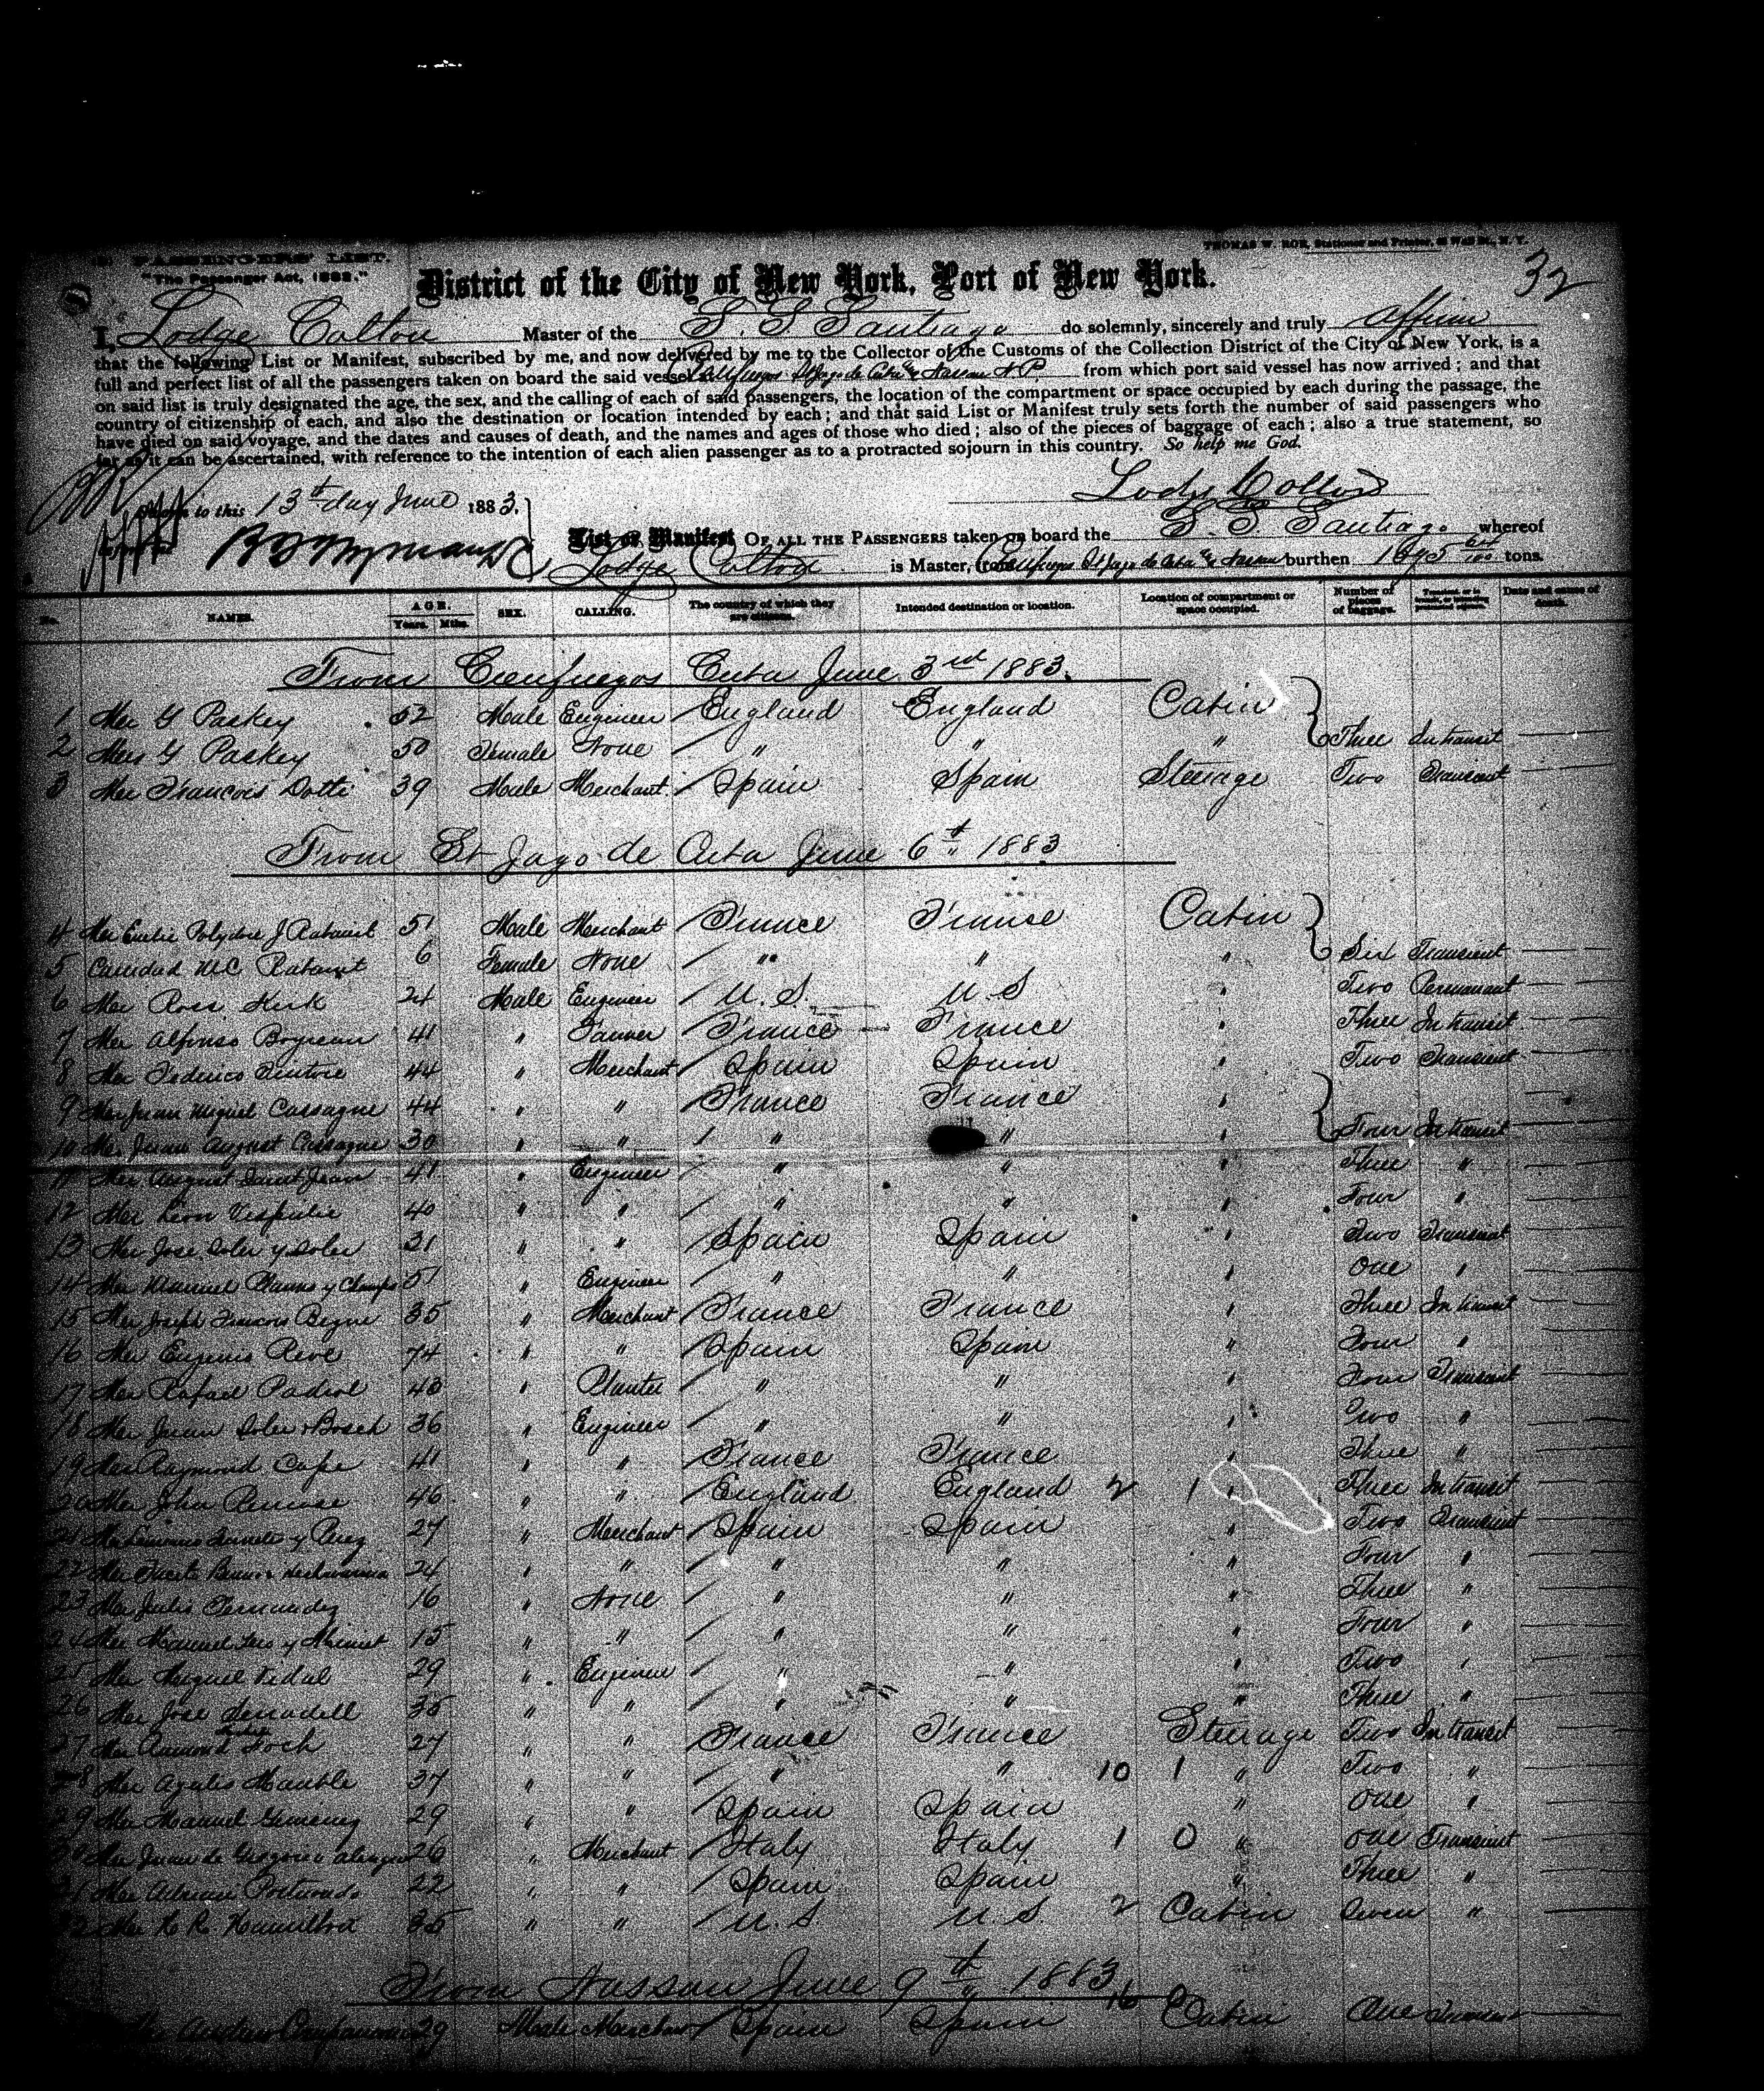 PASSENGERS LIST. THOMAS W. ROE, Stationer and Printer, N. Y.
"The Passenger Act, 1882."
32
District of the City of New York, Port of New York.
I, Lodge Colton Master of the S. S Santiago do solemnly, sincerely and truly affirm
that the following List or Manifest, subscribed by me, and now delivered by me to the Collector of the Customs of the Collection District of the City of New York, is a
full and perfect list of all the passengers taken on board the said vessel at Cienfuegos St Jago de Cuba & Nassau N.P from which port said vessel has now arrived; and that
on said list is truly designated the age, the sex, and the calling of each of said passengers, the location of the compartment or space occupied by each during the passage, the
country of citizenship of each, and also the destination or location intended by each; and that said List or Manifest truly sets forth the number of said passengers who
have died on said voyage, and the dates and causes of death, and the names and ages of those who died; also of the pieces of baggage of each; also a true statement, so
far as it can be ascertained, with reference to the intention of each alien passenger as to a protracted sojourn in this country. So help me God.
Lodge Colton
Sworn to this 13th day June 1883.
List or Manifest OF ALL THE PASSENGERS taken on board the S. S. Santiago whereof
Lodge Colton is Master, from Cienfuegos St Jago de Cuba & Nassau burthen 1695 64/100 tons.
No. NAMES. AGE. Years. Mths. SEX. CALLING. The country of which they are citizens. Intended destination or location. Location of compartment or space occupied. Number of pieces of baggage. Date and cause of death.
From Cienfuegos Cuba June 3rd 1883.
1 Mr G Paskey 52 Male Engineer England England Cabin
2 Mrs G Paskey 50 Female None " " " Three In transit
3 Mr Francois Dotti 39 Male Merchant Spain Spain Steerage Two Transient
From St Jago de Cuba June 6th 1883
4 Mr Polydore J Rabaut 51 Male Merchant France France Cabin
5 Caridad MC Rabaut 6 Female None " " " Six Transient
6 Mr Ross Kirk 24 Male Engineer U. S. U. S " Two Permanent
7 Mr Alfonso 41 " Farmer France France " Three In transit
8 Mr Federico 44 " Merchant Spain Spain " Two Transient
9 Mr Juan Miguel Cassagne 44 " " France France "
10 Mr Juan August Cassagne 30 " " " " " Four In transit
11 Mr August Saint Jean 41 " Engineer " " " Three "
12 Mr Leon 40 " " " " " Four "
13 Mr Jose Soler y Soler 31 " " Spain Spain " Two Transient
14 Mr Manuel 51 " Engineer " " " One "
15 Mr Joseph Francois Begue 35 " Merchant France France " Three In transit
16 Mr Eugenio 74 " " Spain Spain " Four "
17 Mr Rafael Padrol 43 " Planter " " " Four Transient
18 Mr Juan Soler y Bosch 36 " Engineer " " " Two "
19 Mr Raymond Cape 41 " " France France " Three "
20 Mr John Penrose 46 " " England England 2 1 " Three In transit
21 Mr y Perez 27 " Merchant Spain Spain " Two Transient
22 Mr 24 " " " " " Four "
23 Mr Julio Fernandez 16 " None " " " Three "
24 Mr Manuel y 15 " " " " " Four "
25 Mr Miguel Vidal 29 " Engineer " " " Two "
26 Mr Jose Serradell 35 " " " " " Three "
27 Mr Foch 27 " " France France Steerage Two In transit
28 Mr 37 " " " " 10 1 " Two "
29 Mr Manuel 29 " " Spain Spain " One "
30 Mr Juan de 26 " Merchant Italy Italy 1 0 " One Transient
31 Mr Adriano Portuondo 22 " " Spain Spain " Three "
32 Mr Hamilton 35 " " U. S U. S. 2 Cabin Seven "
From Nassau June 9th 1883
29 Male Merchant Spain Spain 16 Cabin One Transient